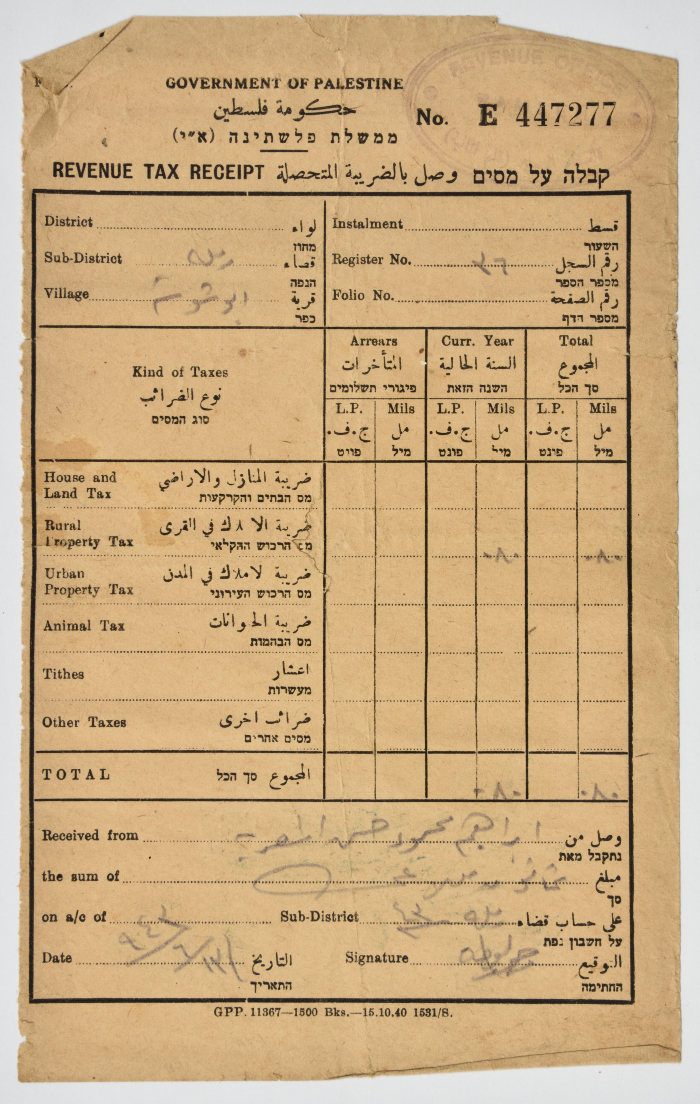 GOVERNMENT OF PALESTINE
حكومة فلسطين
ממשלת פלשתינה (א״י)
No. E 447277
REVENUE TAX RECEIPT وصل بالضريبة المتحصلة קבלה על מסים
District لواء
מחוז
Sub-District قضاء
הנפה
Village ابو شوشة قرية
כפר
Instalment قسط
השעור
Register No. ٣٦ رقم السجل
מספר הספר
Folio No. رقم الصفحة
מספר הדף
Kind of Taxes
نوع الضرائب
סוג המסים
Arrears
المتأخرات
פיגורי תשלומים
Curr. Year
السنة الحالية
השנה הזאת
Total
المجموع
סך הכל
L.P. Mils L.P. Mils L.P. Mils
ج.ف. مل ج.ف. مل ج.ف. مل
פונט מיל פונט מיל פונט מיל
House and ضريبة المنازل والاراضي
Land Tax מס הבתים והקרקעות
Rural ضريبة الاملاك في القرى
Property Tax מס הרכוש החקלאי
٠٨٠ ٠٨٠
Urban ضريبة الاملاك في المدن
Property Tax מס הרכוש העירוני
Animal Tax ضريبة الحيوانات
מס הבהמות
Tithes اعشار
מעשרות
Other Taxes ضرائب اخرى
מסים אחרים
TOTAL סך הכל المجموع
٠٨٠ ٠٨٠
Received from ابراهيم محمود حسن وصل من
נתקבל מאת
the sum of مبلغ
סך
on a/c of Sub-District على حساب قضاء
על חשבון נפת
Date التاريخ
התאריך
Signature التوقيع
החתימה
GPP. 11367—1500 Bks.—15.10.40 1531/S.